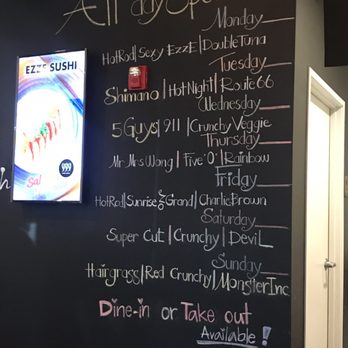 All day Spe
Monday
HotRod|Sexy EzzE|DoubleTuna
Tuesday
Shimano|HotNight|Route 66
Wednesday
5 Guys|911|Crunchy Veggie
Thursday
Mr Mrs Wong|Five "O"|Rainbow
Friday
HotRod|Sunrise Grand|Charlie Brown
Saturday
Super Cut|Crunchy|Devil
Sunday
Hairgrass|Red Crunchy|Monster Inc
Dine-in or Take out
Available!
EZZE SUSHI
999